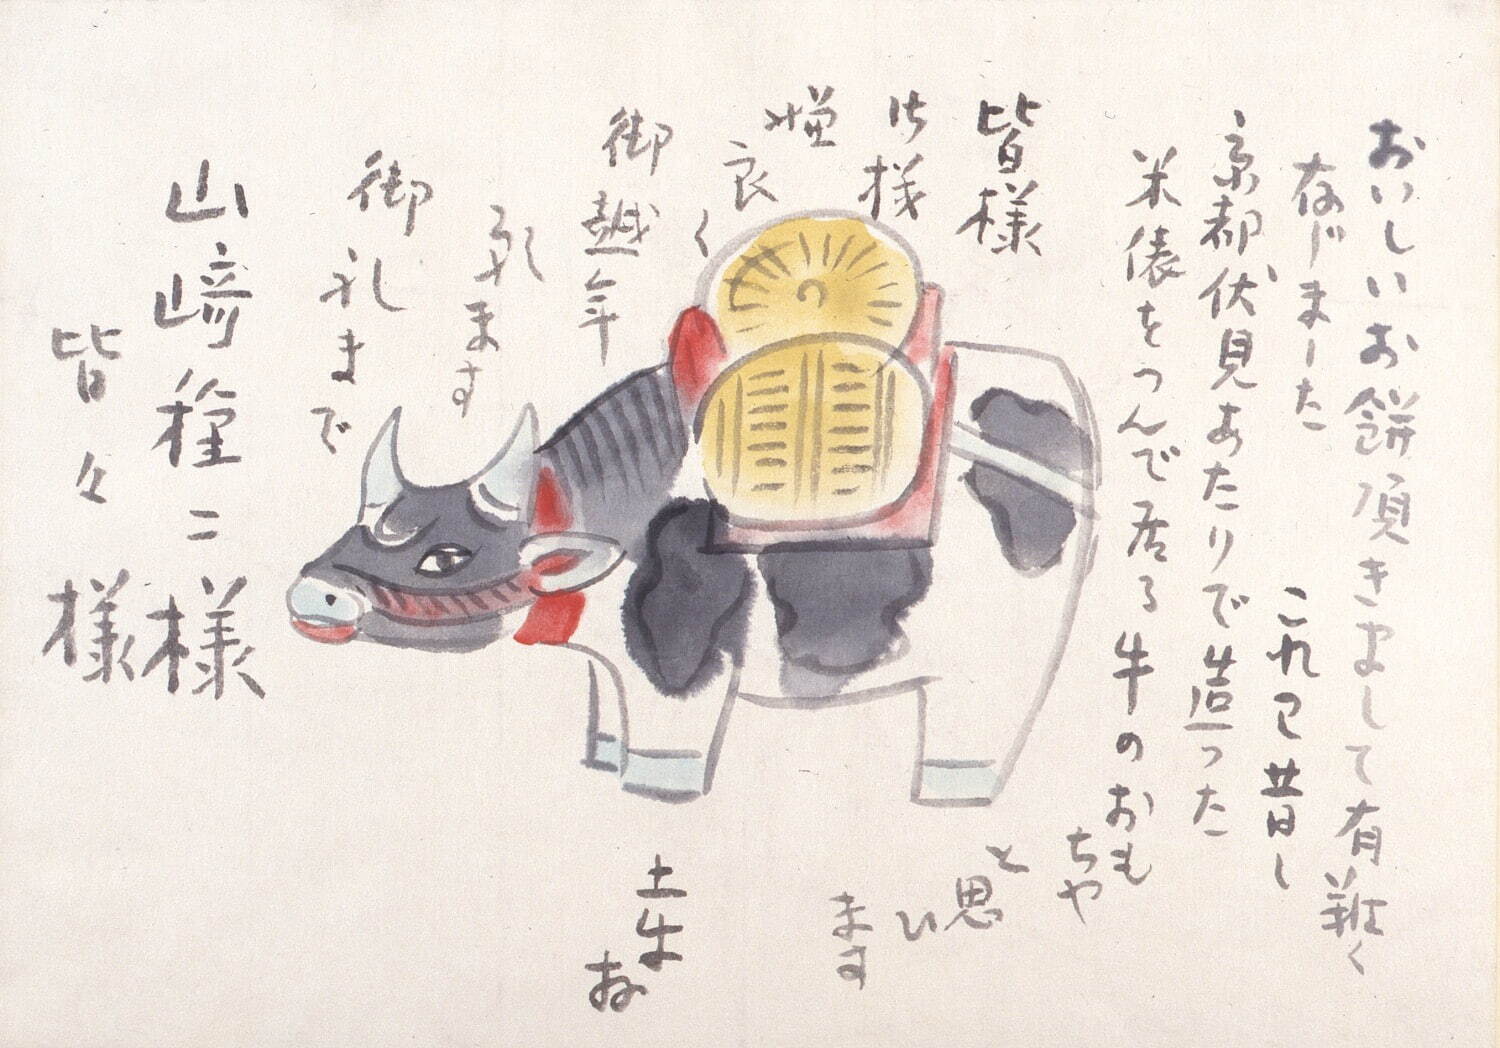 おいしいお餅頂きまして有難く
存じました これは昔し
京都伏見あたりで造った
米俵をつんで居る牛のおも
ちや
と思
ひ
ます
皆様
御機
嫌
良
く
御越年
祈ます
御礼まで
土牛
山﨑種二様
皆々様